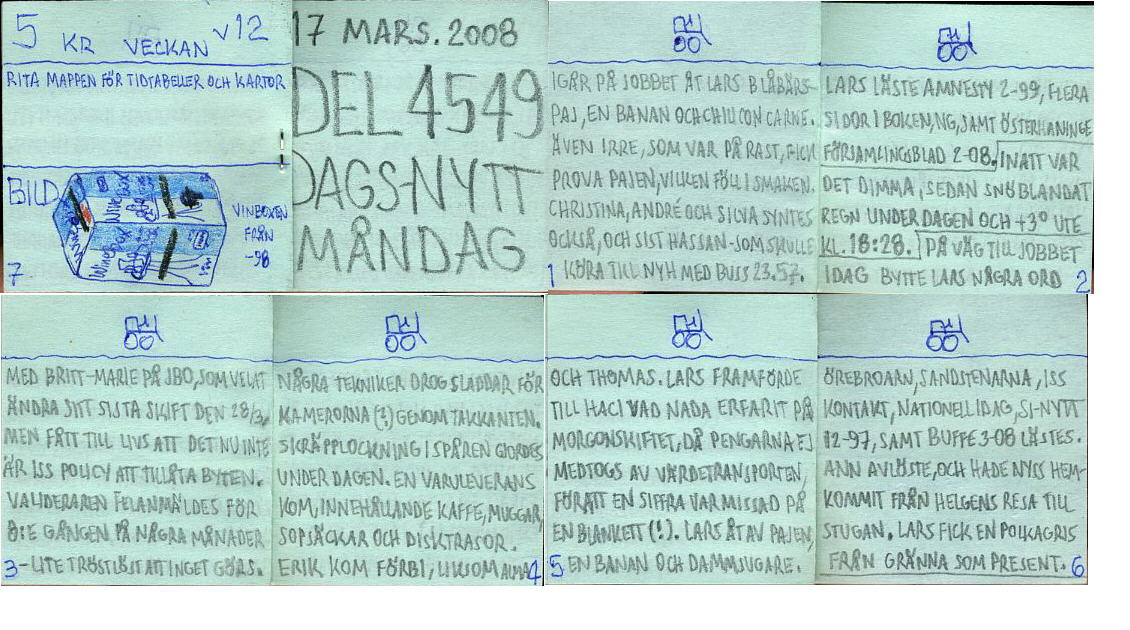 5 KR VECKAN V12
RITA MAPPEN FÖR TIDTABELLER OCH KARTOR
BILD
WineBox
WineBox
VINBOXEN
FRÅN
-98
7
17 MARS. 2008
DEL 4549
DAGS-NYTT
MÅNDAG
IGÅR PÅ JOBBET ÅT LARS BLÅBÄRS-
PAJ, EN BANAN OCH CHILI CON CARNE.
ÄVEN IRRE, SOM VAR PÅ RAST, FICK
PROVA PAJEN, VILKEN FÖLL I SMAKEN.
CHRISTINA, ANDRÉ OCH SILVA SYNTES
OCKSÅ, OCH SIST HASSAN-SOM SKULLE
KÖRA TILL NYH MED BUSS 23.57.
1
LARS LÄSTE AMNESTY 2-99, FLERA
SIDOR I BOKEN, NG, SAMT ÖSTERHANINGE
FÖRSAMLINGSBLAD 2-08. INATT VAR
DET DIMMA, SEDAN SNÖBLANDAT
REGN UNDER DAGEN OCH +3° UTE
KL. 18:28. PÅ VÄG TILL JOBBET
IDAG BYTTE LARS NÅGRA ORD
2
MED BRITT-MARIE PÅ JBO, SOM VELAT
ÄNDRA SITT SISTA SKIFT DEN 28/3,
MEN FÅTT TILL LIVS ATT DET NU INTE
ÄR ISS POLICY ATT TILLÅTA BYTEN.
VALIDERAREN FELANMÄLDES FÖR
8:E GÅNGEN PÅ NÅGRA MÅNADER
-LITE TRÖSTLÖST ATT INGET GÖRS.
3
NÅGRA TEKNIKER DROG SLADDAR FÖR
KAMERORNA (?) GENOM TAKKANTEN.
SKRÄPPLOCKNING I SPÅREN GJORDES
UNDER DAGEN. EN VARULEVERANS
KOM, INNEHÅLLANDE KAFFE, MUGGAR,
SOPSÄCKAR OCH DISKTRASOR.
ERIK KOM FÖRBI, LIKSOM ALMA
4
OCH THOMAS. LARS FRAMFÖRDE
TILL HACI VAD NADA ERFARIT PÅ
MORGONSKIFTET, DÅ PENGARNA EJ
MEDTOGS AV VÄRDETRANSPORTEN,
FÖR ATT EN SIFFRA VAR MISSAD PÅ
EN BLANKETT (!). LARS ÅT AV PAJEN,
EN BANAN OCH DAMMSUGARE.
5
ÖREBROARN, SANDSTENARNA, ISS
KONTAKT, NATIONELL IDAG, SI-NYTT
12-97, SAMT BUFFE 3-08 LÄSTES.
ANN AVLÖSTE, OCH HADE NYSS HEM-
KOMMIT FRÅN HELGENS RESA TILL
STUGAN. LARS FICK EN POLKAGRIS
FRÅN GRÄNNA SOM PRESENT.
6